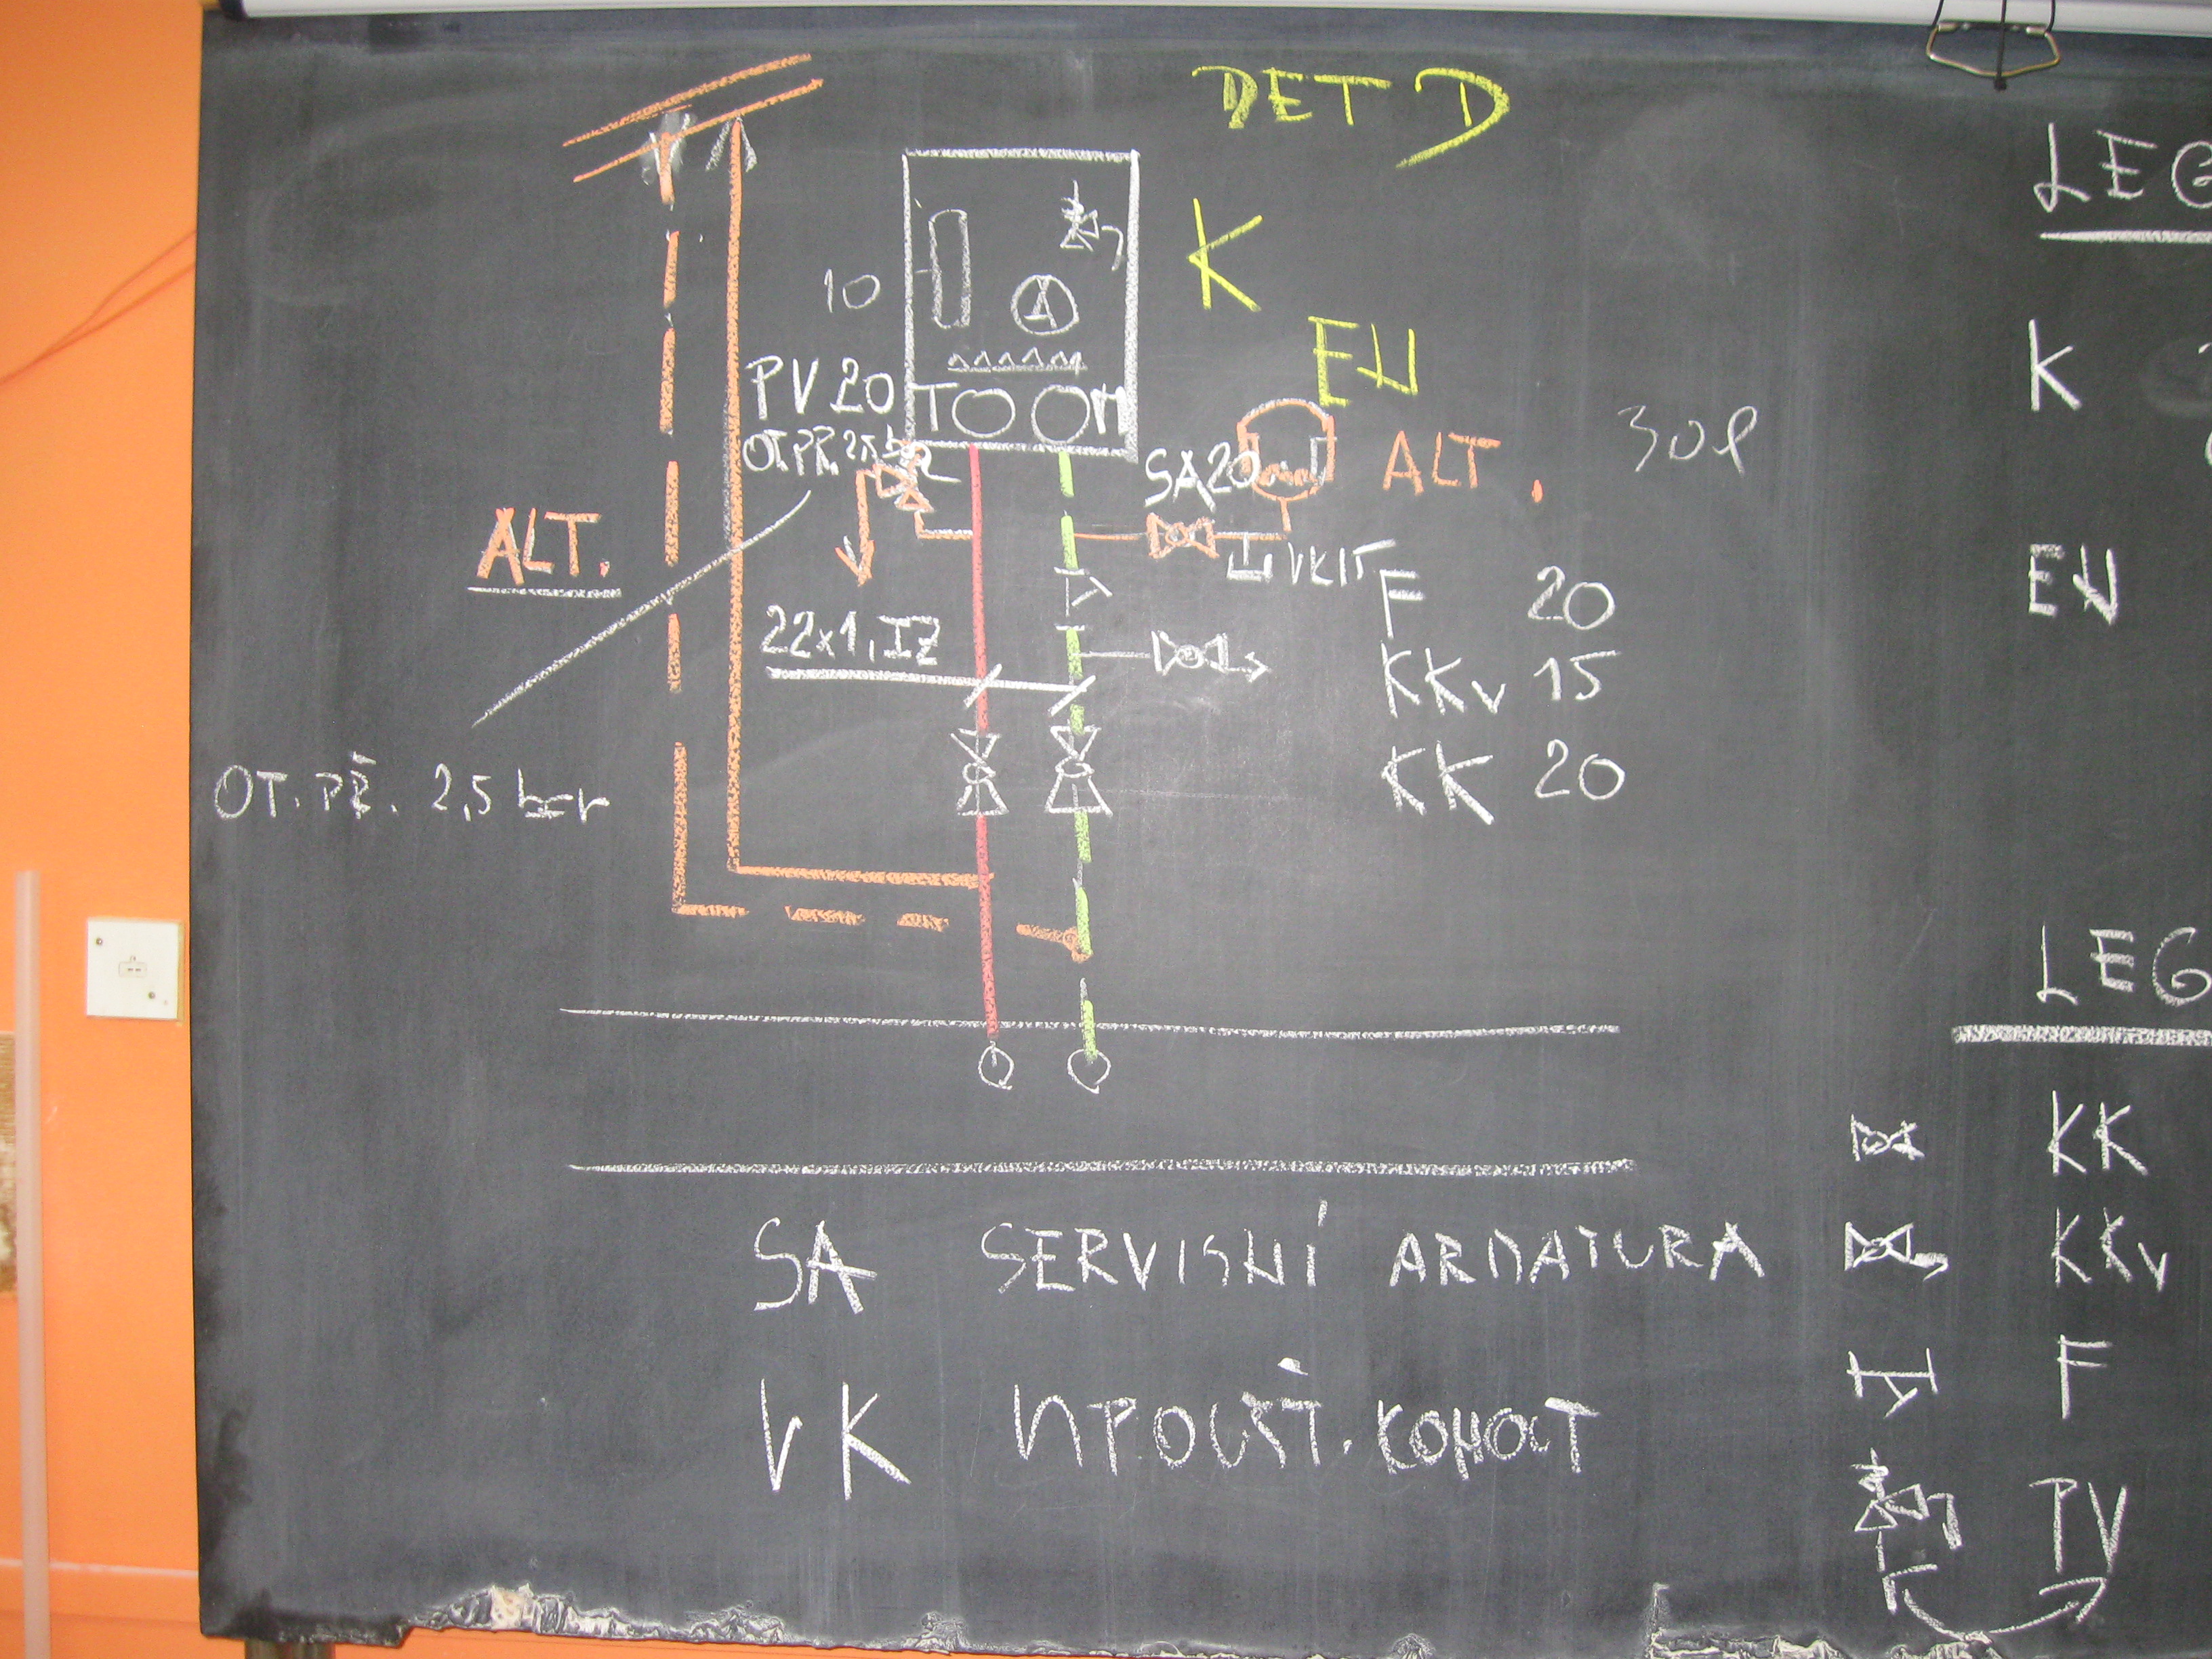 DET D
LEG
K
10
K
EN
PV 20
T
M
OT.PŘ. 2,5 b
SA20
ALT.
30l
ALT.
VK15
F 20
EN
22x1, IZ
KKv 15
OT. PŘ. 2,5 bar
KK 20
LEG
KK
SA SERVISNÍ ARMATURA
KKv
F
VK VYPOUŠT. KOHOUT
PV